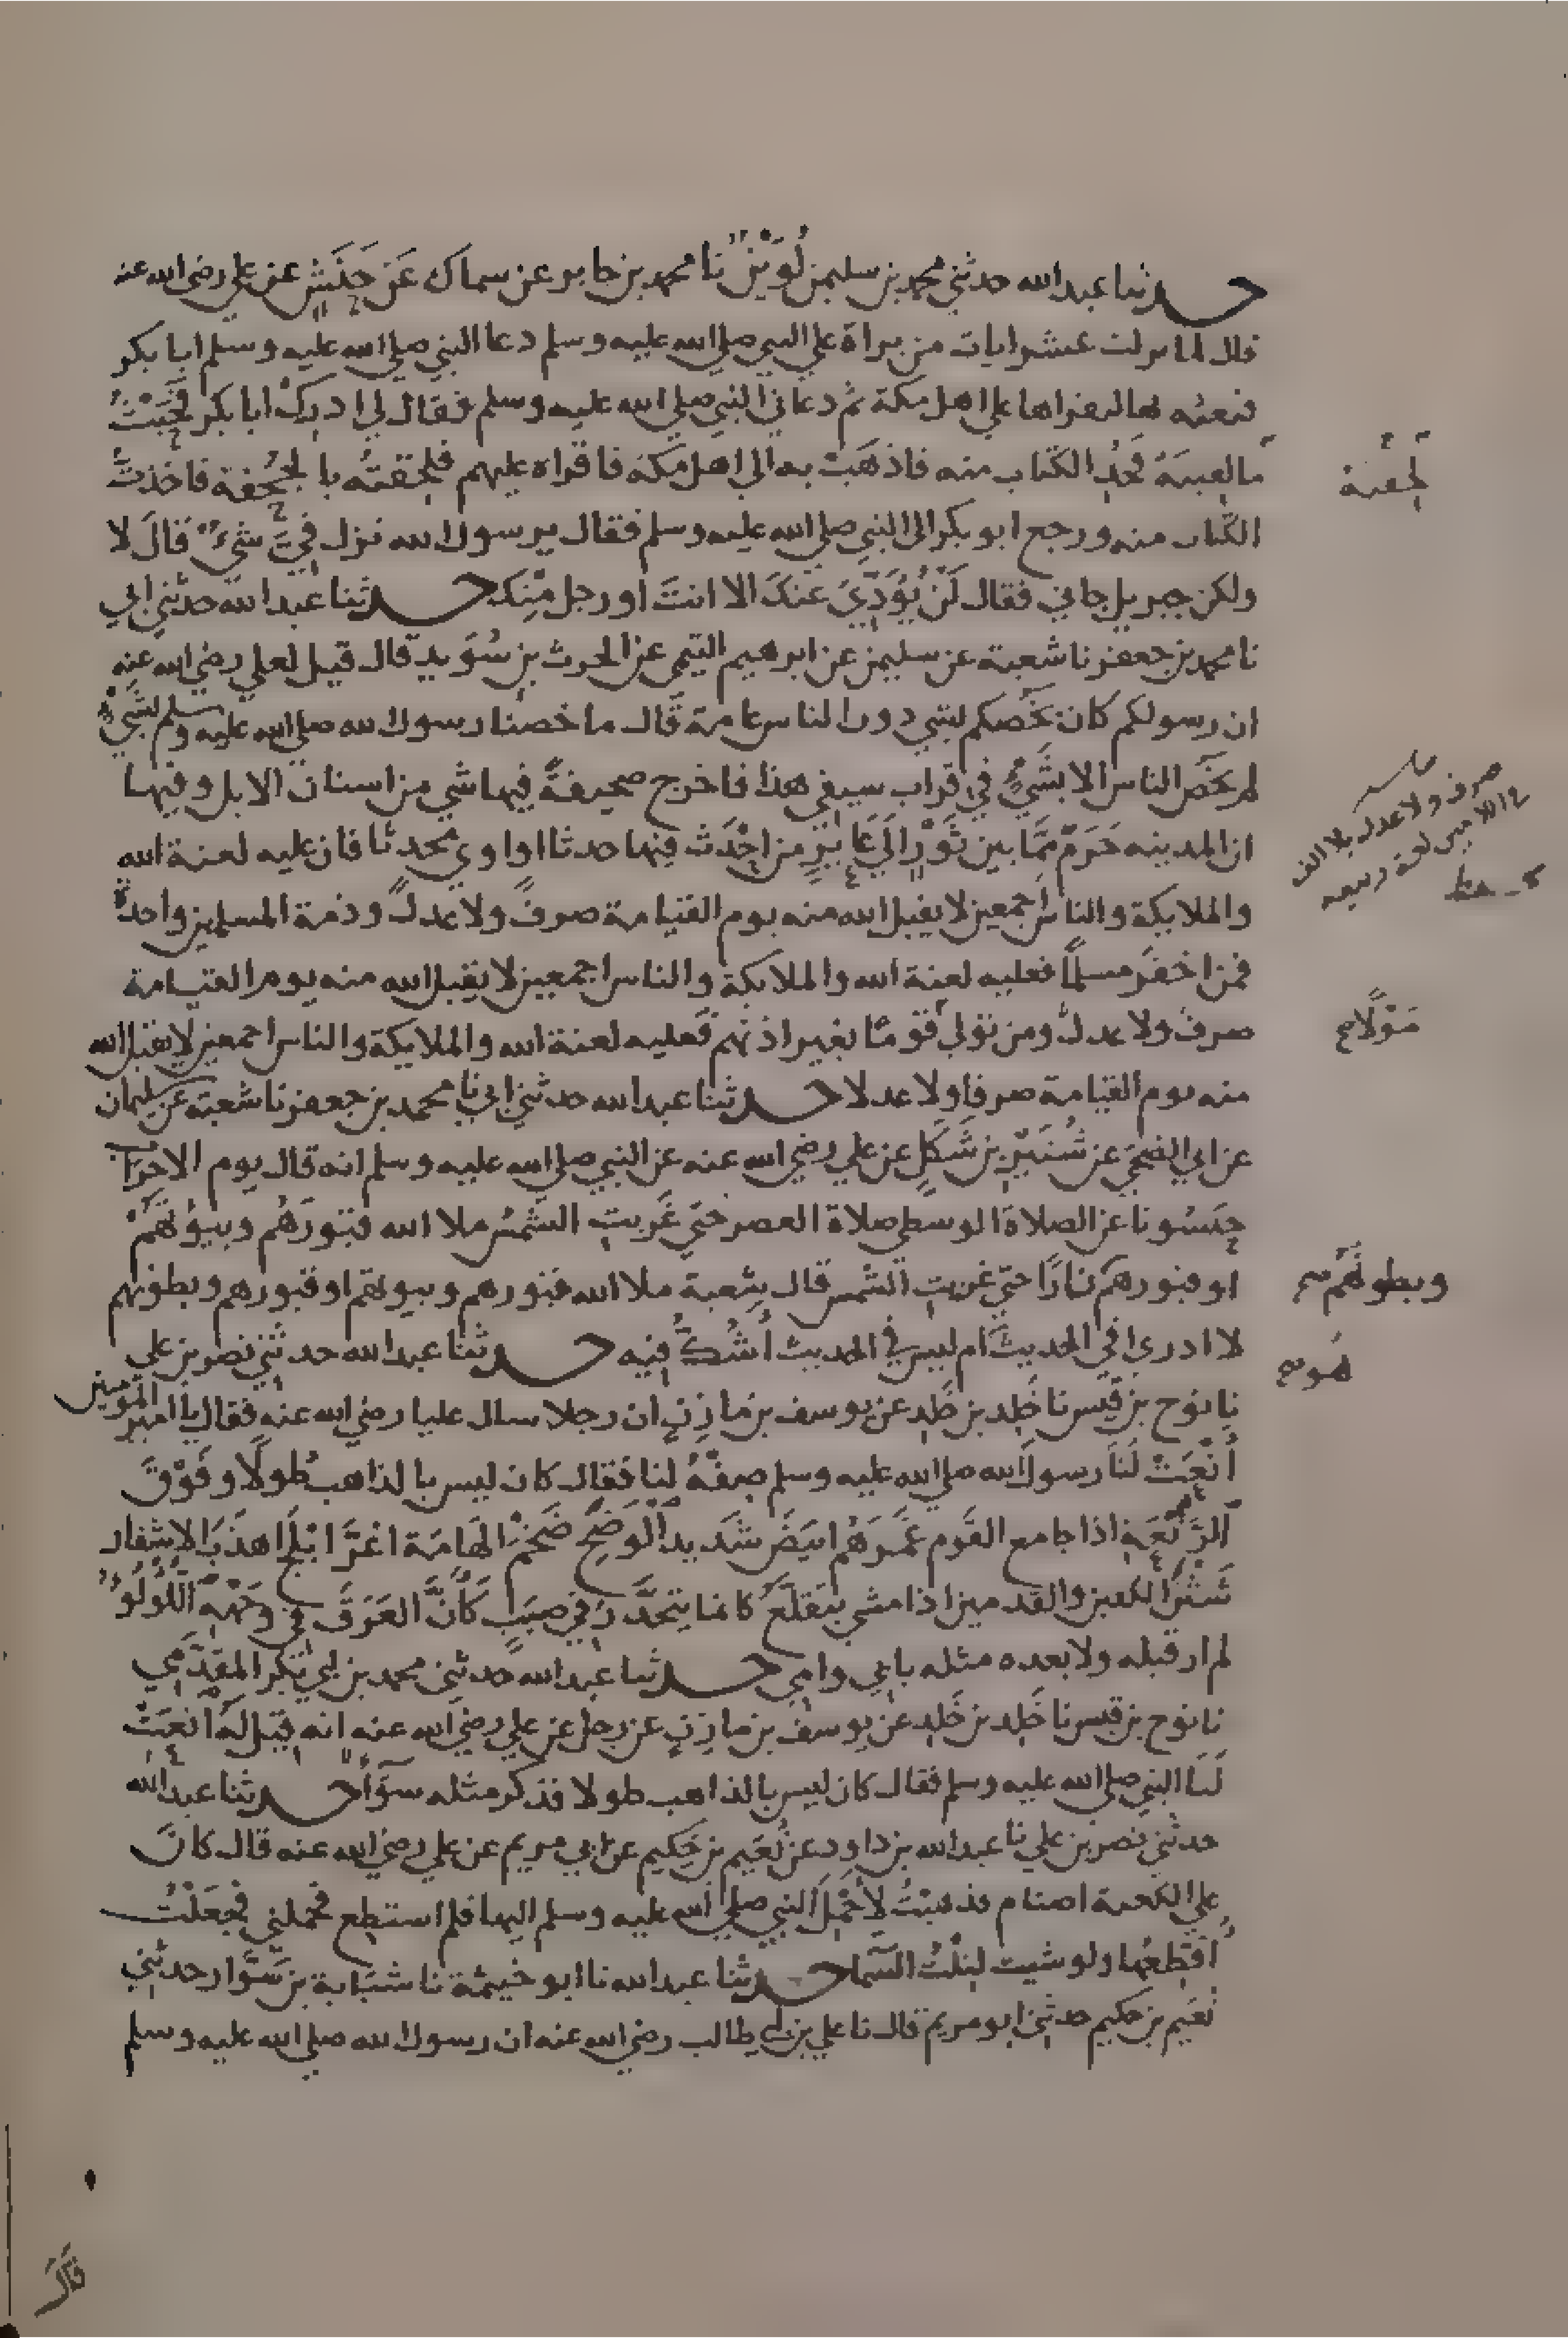 حدثنا عبد الله حدثني محمد بن سليمن لوين نا محمد بن جابر عن سماك عن حنش عن علي رضي الله عنه
قال لما نزلت عشر ايات من براة علي النبي صلي الله عليه وسلم دعا النبي صلي الله عليه وسلم ابا بكر
فبعثه بها ليقراها علي اهل مكة ثم دعاني النبي صلي الله عليه وسلم فقال لي ادرك ابا بكر فحيث
ما لقيته فخذ الكتاب منه فاذهب به الي اهل مكة فاقراه عليهم فلحقته بالجحفة فاخذت
لحقته
الكتاب منه ورجع ابو بكر الي النبي صلي الله عليه وسلم فقال يرسول الله نزل في شيء قال لا
ولكن جبريل جاني فقال لن يؤدي عنك الا انت او رجل منك حدثنا عبد الله حدثني ابي
نا محمد بن جعفر نا شعبة عن سليمن عن ابرهيم التيمي عن الحرث بن سويد قال قيل لعلي رضي الله عنه
ان رسولكم كان يخصكم بشي دون الناس عامة قال ما خصنا رسول الله صلي الله عليه وسلم بشيء
لم يخص الناس الا بشيء في قراب سيفي هذا فاخرج صحيفة فيها شي من اسنان الابل وفيها
ان المدينه حرم مما بين ثور الي عاير من احدث فيها حدثا او اوي محدثا فان عليه لعنة الله
صرف ولا عدل بلا الف
والملايكة والناس اجمعين لا يقبل الله منه يوم القيامة صرف ولا عدل وذمة المسلمين واحدة
فمن اخفر مسلما فعليه لعنة الله والملايكة والناس اجمعين لا يقبل الله منه يوم القيامة
صرف ولا عدل ومن تولي قوما بغير اذنهم فعليه لعنة الله والملايكة والناس اجمعين لا يقبل الله
مولا
منه يوم القيامة صرفا ولا عدلا حدثنا عبد الله حدثني ابي نا محمد بن جعفر نا شعبة عن سليمان
عن ابي الضحي عن شتير بن شكل عن علي رضي الله عنه عن النبي صلي الله عليه وسلم انه قال يوم الاحزاب
حبسونا عن الصلاة الوسطي صلاة العصر حتي غربت الشمس ملا الله قبورهم وبيوتهم
او قبورهم نارا حتي غربت الشمس قال شعبة ملا الله قبورهم وبيوتهم او قبورهم وبطونهم
وبطونهم
لا ادري افي الحديث ام ليس في الحديث اشك فيه حدثنا عبد الله حدثني نصر بن علي
هو
نا نوح بن قيس نا خلد بن خلد عن يوسف بن مازن ان رجلا سال عليا رضي الله عنه فقال يا امير المومنين
انعت لنا رسول الله صلي الله عليه وسلم صفه لنا فقال كان ليس بالذاهب طولا وفوق
الربعة اذا جامع القوم غمرهم ابيض شديد الوضح ضخم الهامة اغر ابلج اهدب الاشفار
شثن الكفين والقدمين اذا مشي يتقلع كانما يتحدر في صبب كأن العرق في وجهه اللؤلؤ
لم ار قبله ولا بعده مثله بابي وامي حدثنا عبد الله حدثني محمد بن ابي بكر المقدمي
نا نوح بن قيس نا خلد بن خلد عن يوسف بن مازن عن رجل عن علي رضي الله عنه انه قيل له انعت
لنا النبي صلي الله عليه وسلم فقال كان ليس بالذاهب طولا فذكر مثله سوآء حدثنا عبد الله
حدثني نصر بن علي نا عبد الله بن داود عن نعيم بن حكيم عن ابي مريم عن علي رضي الله عنه قال كان
علي الكعبة اصنام فذهبت لاحمل النبي صلي الله عليه وسلم اليها فلم استطع فحملني فجعلت
اقطعها ولو شيت لنلت السما حدثنا عبد الله نا ابو خيثمة نا شبابة بن سوار حدثني
نعيم بن حكيم حدثني ابو مريم قال نا علي بن ابي طالب رضي الله عنه ان رسول الله صلي الله عليه وسلم
قال